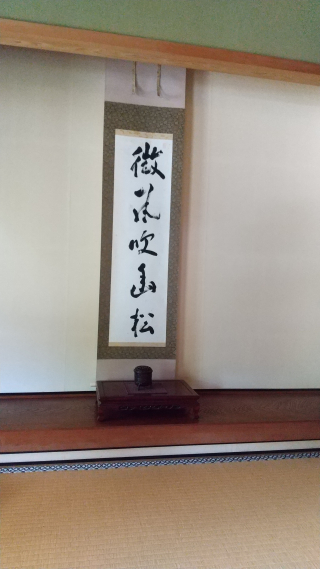 微風吹幽松